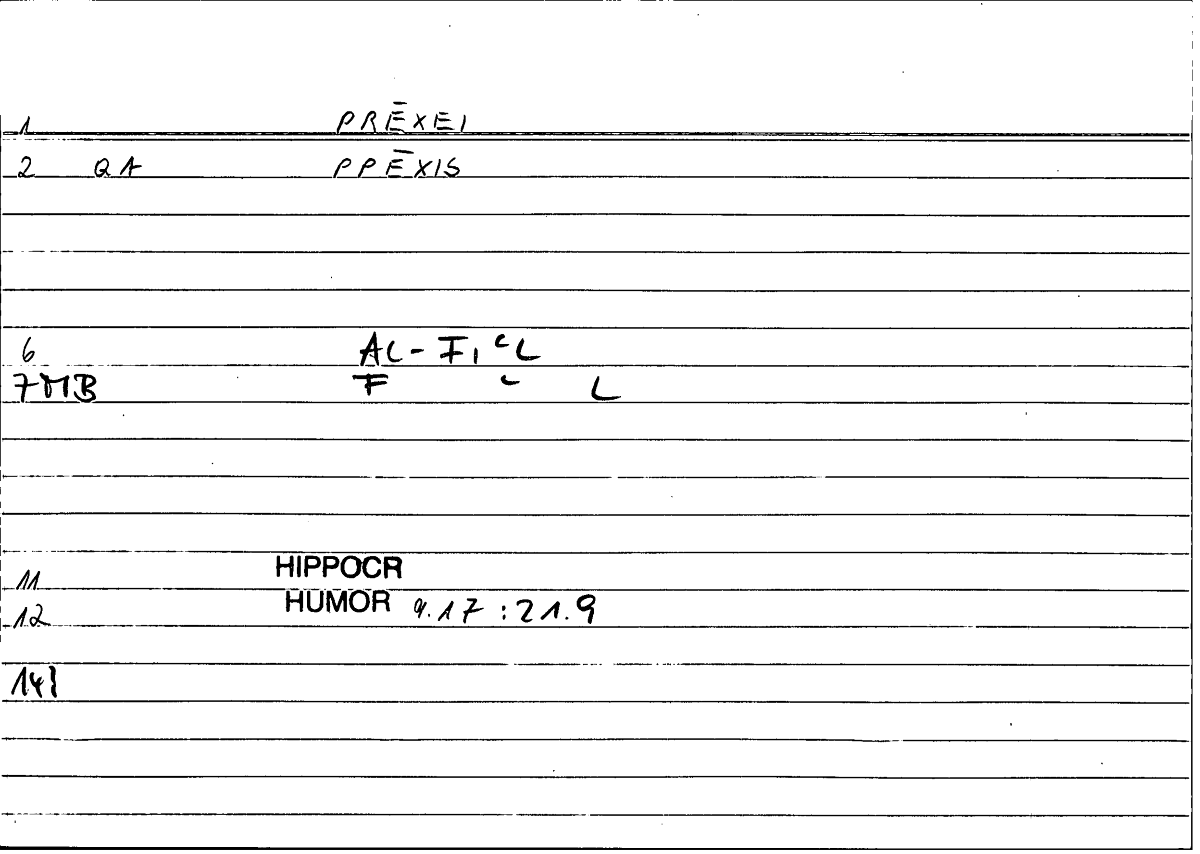 1 PRĒXEI
2 QA PPĒXIS
6 AL-FI, ᶜL
7 MB F ᶜ L
11 HIPPOCR
12 HUMOR 9.17:21.9
14}